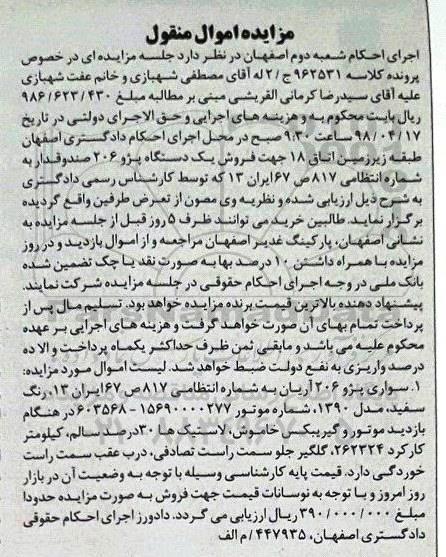 مزایده اموال منقول
اجرای احکام شعبه دوم اصفهان در نظر دارد جلسه مزایده ای در خصوص
پرونده کلاسه ۹۶۲۵۳۱ ج/۲ له آقای مصطفی شهبازی و خانم عفت شهبازی
علیه آقای سیدرضا کرمانی القریشی مبنی بر مطالبه مبلغ ۹۸۶/۶۲۳/۴۳۰
ریال بابت محکوم به و هزینه های اجرایی و حق الاجرای دولتی در تاریخ
۹۸/۰۴/۱۷ ساعت ۹:۳۰ صبح در محل اجرای احکام دادگستری اصفهان
طبقه زیرزمین اتاق ۱۸ جهت فروش یک دستگاه پژو ۲۰۶ صندوقدار به
شماره انتظامی ۸۱۷ ص ۶۷ ایران ۱۳ که توسط کارشناس رسمی دادگستری
به شرح ذیل ارزیابی شده و نظریه وی مصون از تعرض طرفین واقع گردیده
برگزار نماید. طالبین خرید می توانند ظرف ۵ روز قبل از جلسه مزایده به
نشانی اصفهان، پارکینگ غدیر اصفهان مراجعه و از اموال بازدید و در روز
مزایده با همراه داشتن ۱۰ درصد بها به صورت نقد یا چک تضمین شده
بانک ملی در وجه اجرای احکام حقوقی در جلسه مزایده شرکت نمایند.
پیشنهاد دهنده بالاترین قیمت برنده مزایده خواهد بود. تسلیم مال پس از
پرداخت تمام بهای آن صورت خواهد گرفت و هزینه های اجرایی بر عهده
محکوم علیه می باشد و مابقی ثمن ظرف حداکثر یکماه پرداخت و الا ده
درصد واریزی به نفع دولت ضبط خواهد شد. لیست اموال مورد مزایده:
۱. سواری پژو ۲۰۶ آریان به شماره انتظامی ۸۱۷ ص ۶۷ ایران ۱۳، رنگ
سفید، مدل ۱۳۹۰، شماره موتور ۱۵۶۹۰۰۰۰۲۷۷ - ۶۰۳۵۶۸ در هنگام
بازدید موتور و گیربکس خاموش، لاستیک ها ۳۰ درصد سالم، کیلومتر
کارکرد ۲۶۲۳۲۴، گلگیر جلو سمت راست تصادفی، درب عقب سمت راست
خوردگی دارد. قیمت پایه کارشناسی وسیله با توجه به وضعیت آن در بازار
روز امروز و با توجه به نوسانات قیمت جهت فروش به صورت مزایده حدودا
مبلغ ۳۹۰/۰۰۰/۰۰۰ ریال ارزیابی می گردد. دادورز اجرای احکام حقوقی
دادگستری اصفهان، ۴۴۷۹۳۵/م الف